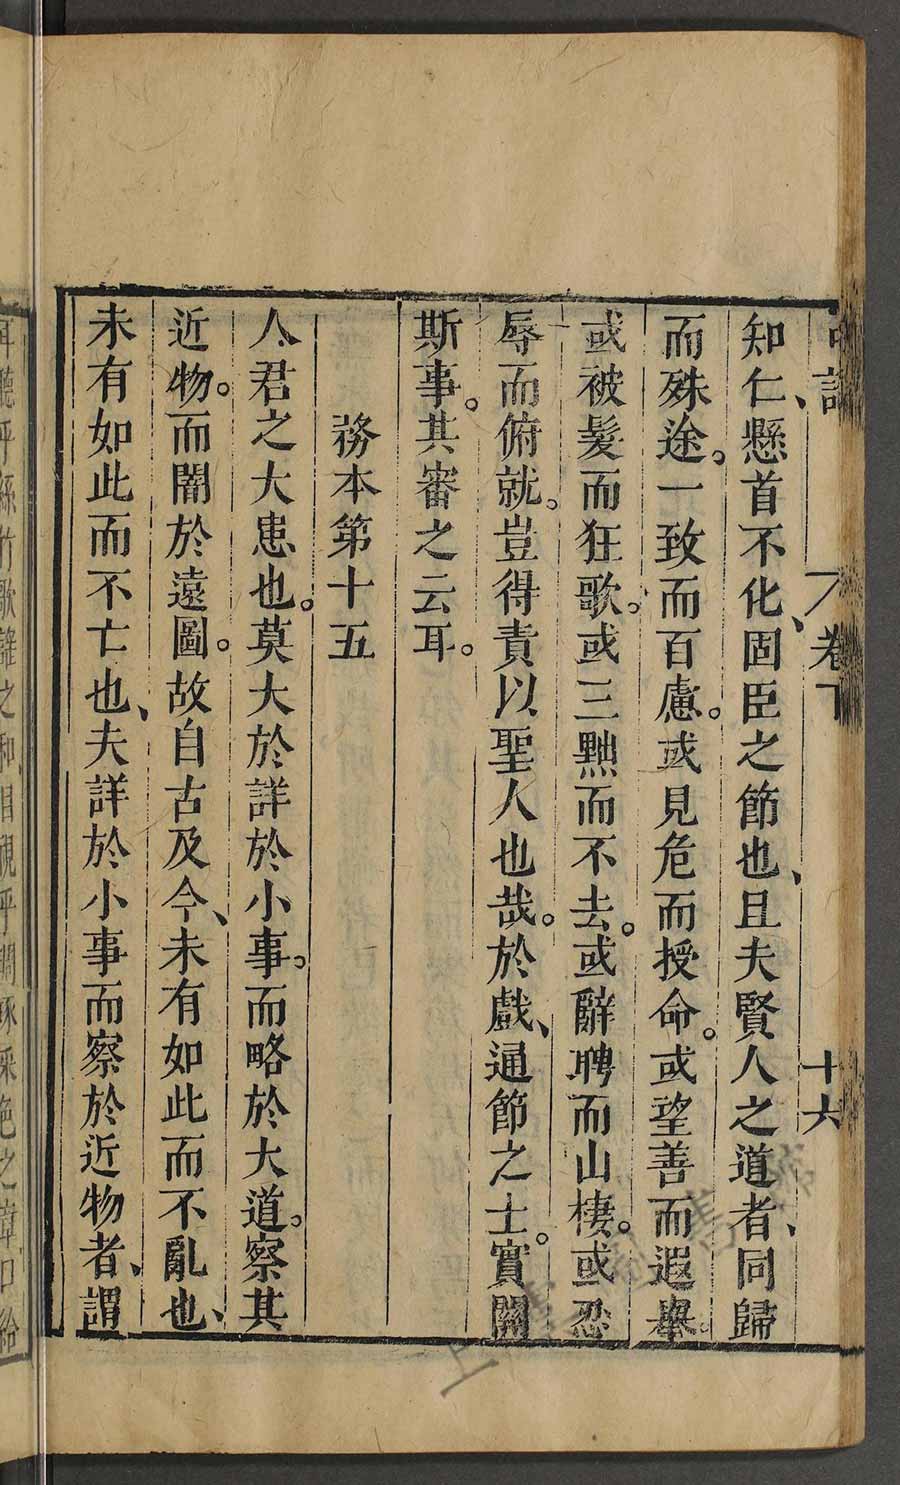 卷下 十六
知仁、懸首不化、固臣之節也、且夫賢人之道者、同歸
而殊途。一致而百慮。或見危而授命。或望善而遐舉。
或被髮而狂歌。或三黜而不去。或辭聘而山棲。或忍
辱而俯就。豈得責以聖人也哉。於戲、通節之士。實關
斯事。其審之云耳。
務本第十五
人君之大患也。莫大於詳於小事。而略於大道。察其
近物。而闇於遠圖。故自古及今、未有如此而不亂也、
未有如此而不亡也、夫詳於小事而察於近物者、謂
耳聽乎絲竹歌謠之和、目視乎雕琢采色之章、口給